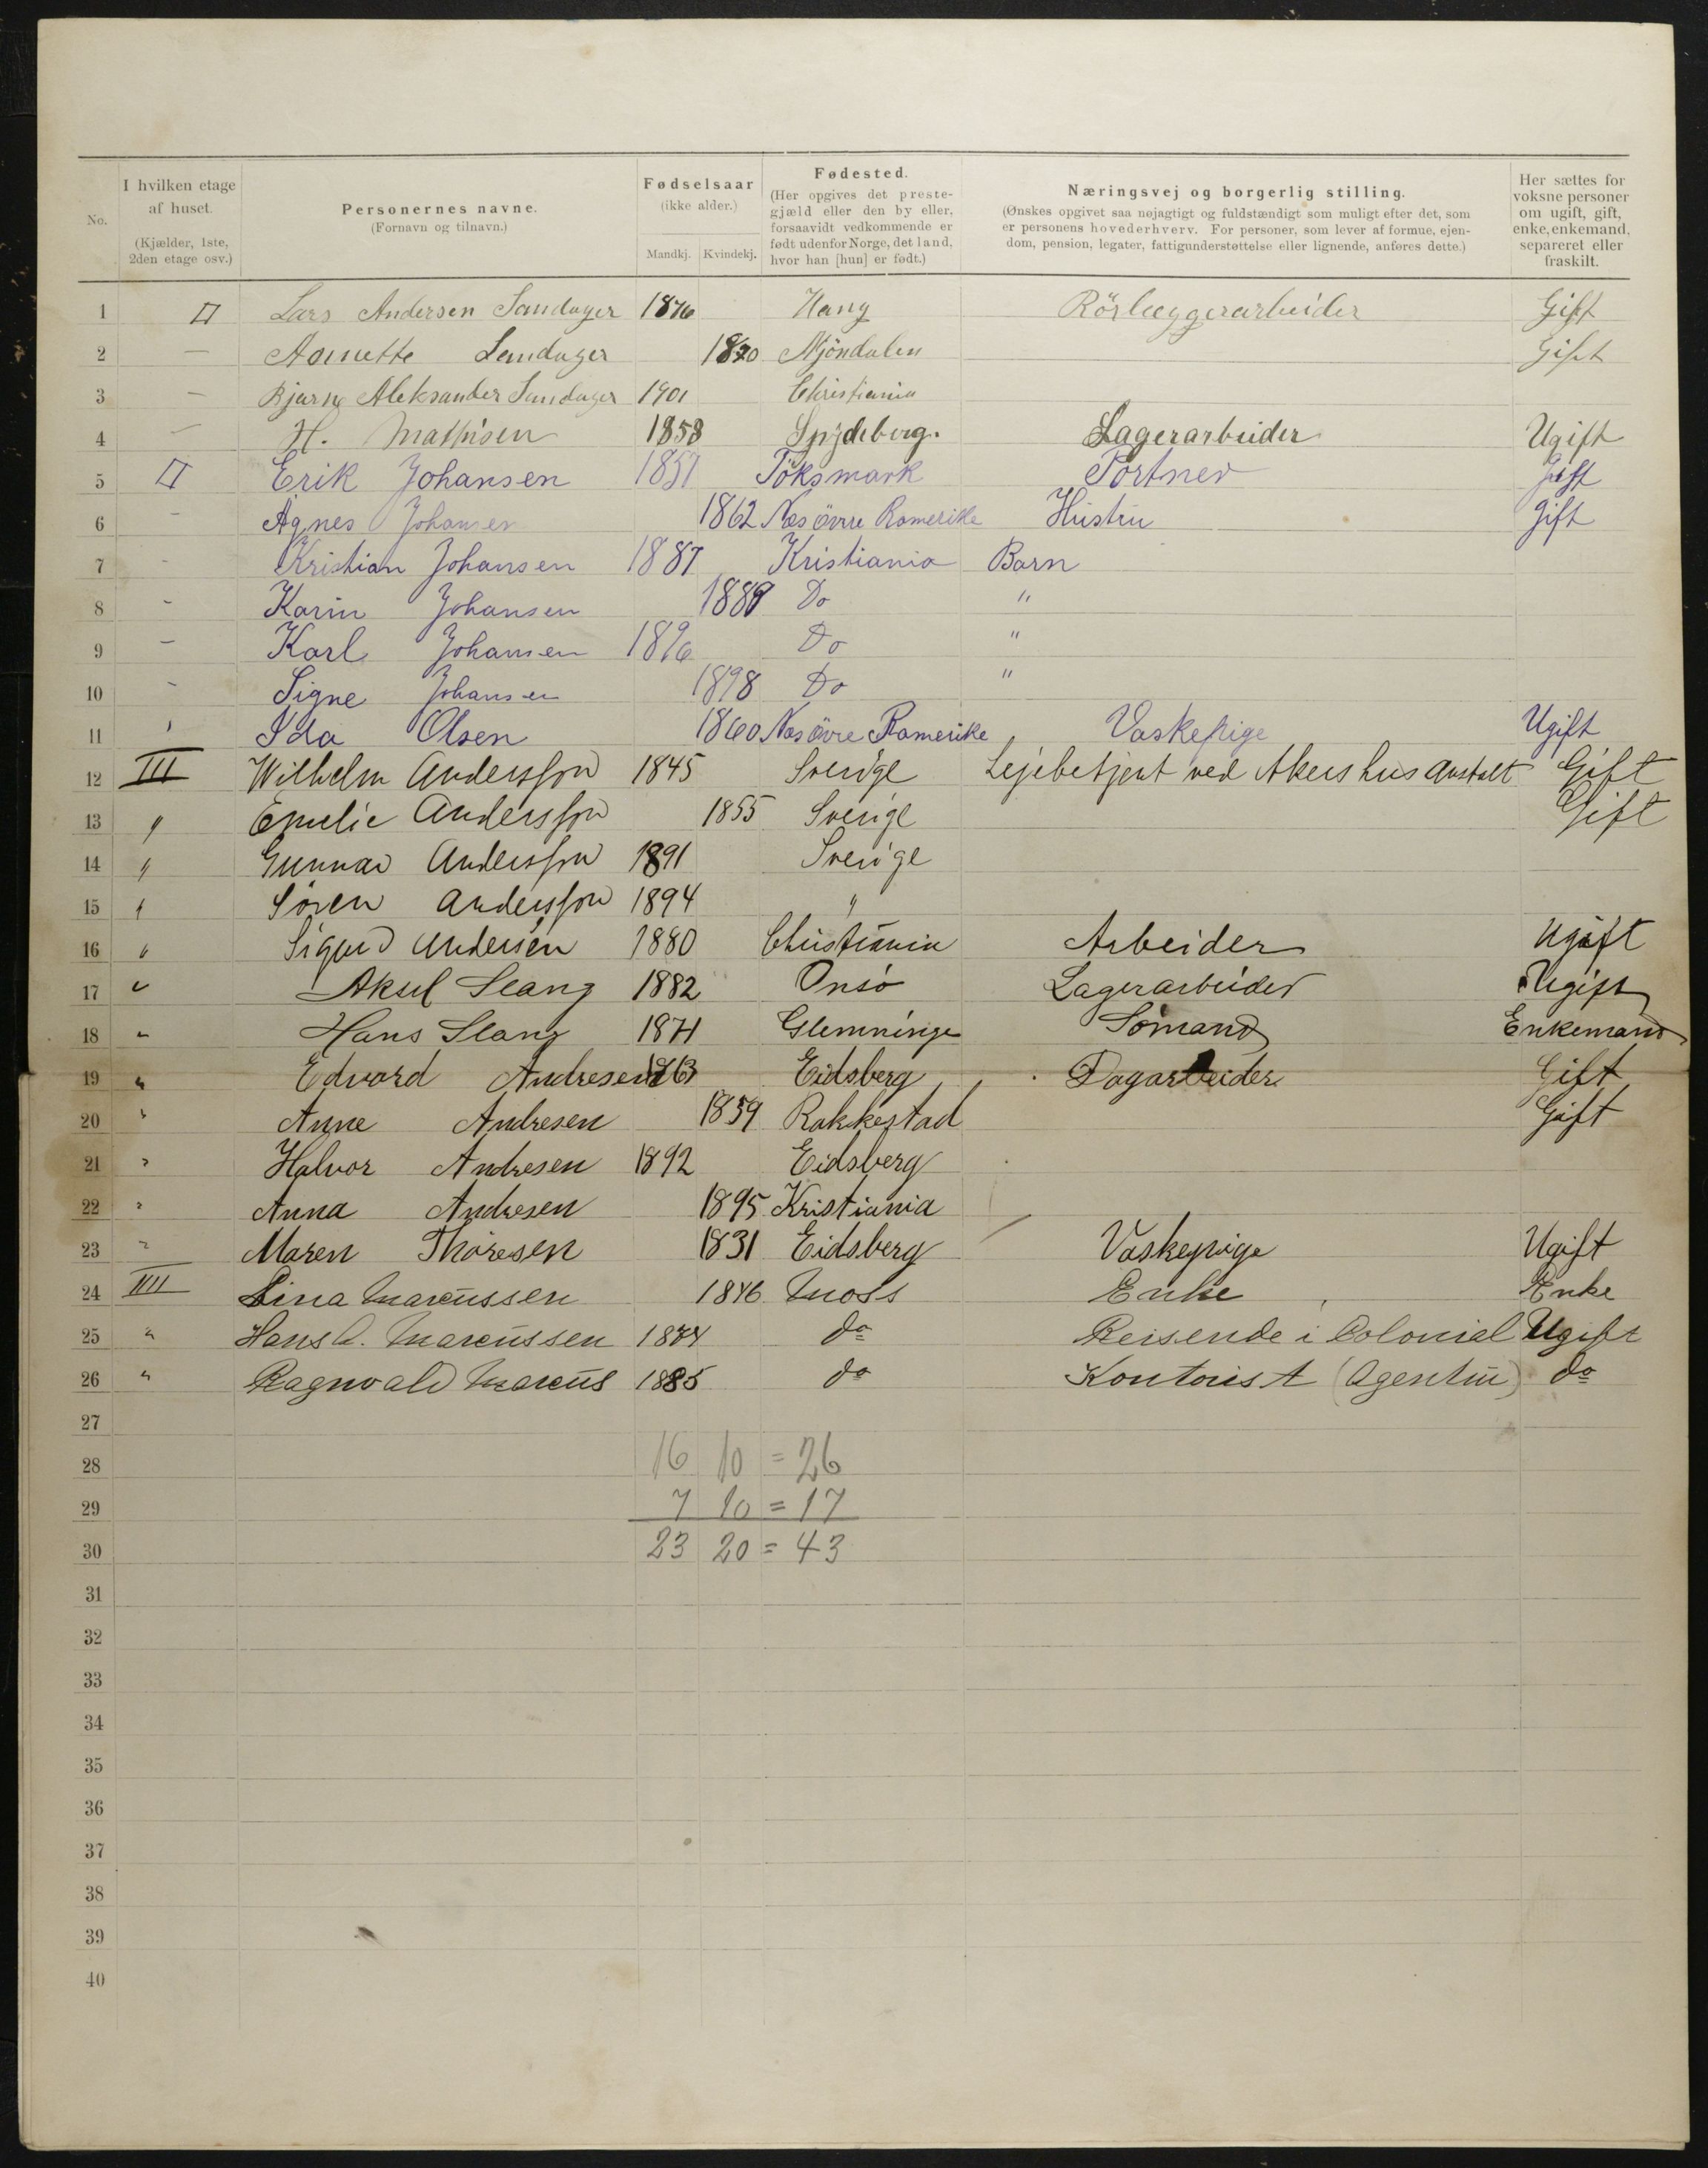 No. I hvilken etage af huset. (Kjælder, 1ste, 2den etage osv.) Personernes navne. (Fornavn og tilnavn.) Fødselsaar (ikke alder.) Mandkj. Kvindekj. Fødested. (Her opgives det prestegjæld eller den by eller, forsaavidt vedkommende er født udenfor Norge, det land, hvor han [hun] er født.) Næringsvej og borgerlig stilling. (Ønskes opgivet saa nøjagtigt og fuldstændigt som muligt efter det, som er personens hovederhverv. For personer, som lever af formue, ejendom, pension, legater, fattigunderstøttelse eller lignende, anføres dette.) Her sættes for voksne personer om ugift, gift, enke, enkemand, separeret eller fraskilt.
1 II Lars Andersen Sandager 1876 Haug Rörlæggerarbeider Gift
2 — Annette Sandager 1870 Mjöndalen Gift
3 — Bjarne Aleksander Sandager 1901 Christiania
4 — H. Mathisen 1858 Spydeberg. Lagerarbeider Ugift
5 II Erik Johansen 1857 Töksmark Portner Gift
6 - Agnes Johansen 1862 Nes övre Romerike Hustru Gift
7 - Kristian Johansen 1887 Kristiania Barn
8 - Karin Johansen 1889 Do "
9 - Karl Johansen 1896 Do "
10 - Signe Johansen 1898 Do "
11 ' Ida Olsen 1860 Nes övre Romerike Vaskepige Ugift
12 III Wilhelm Andersson 1845 Sverige Lejebetjent ved Akershus Anstalt Gift
13 " Emelie Andersson 1855 Sverige Gift
14 " Gunnar Andersson 1891 Sverige
15 " Sören Andersson 1894 "
16 " Sigurd Andersen 1880 Christiania Arbeider Ugift
17 " Aksel Slang 1882 Onsö Lagerarbeider Ugift
18 " Hans Slang 1871 Glemminge Sömand Enkemand
19 " Edvard Andresen 1863 Eidsberg Dagarbeider Gift
20 " Anne Andresen 1859 Rakkestad Gift
21 " Halvor Andresen 1892 Eidsberg
22 " Anna Andresen 1895 Kristiania
23 " Maren Thoresen 1831 Eidsberg Vaskepige Ugift
24 IIII Lina Marcussen 1846 Moss Enke Enke
25 " Hans A. Marcussen 1874 do Reisende i Colonial Ugift
26 " Ragnvald Marcus 1885 do Kontorist (Agentur) do
27
28 16 10 = 26
29 7 10 = 17
30 23 20 = 43
31
32
33
34
35
36
37
38
39
40